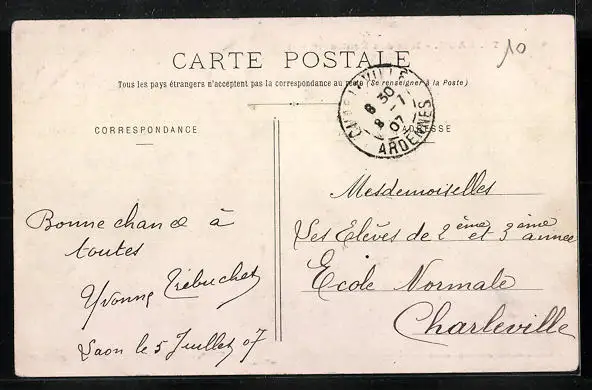 10
CARTE POSTALE
Tous les pays étrangers n'acceptent pas la correspondance au recto (Se renseigner à la Poste)
CORRESPONDANCE
ADRESSE
CHARLEVILLE
8 30
8 -7
07
ARDENNES
Bonne chance à
toutes
Yvonne Trébuchet
Laon le 5 Juillet 07
Mesdemoiselles
Les Elèves de 2ème et 3ème année
Ecole Normale
Charleville